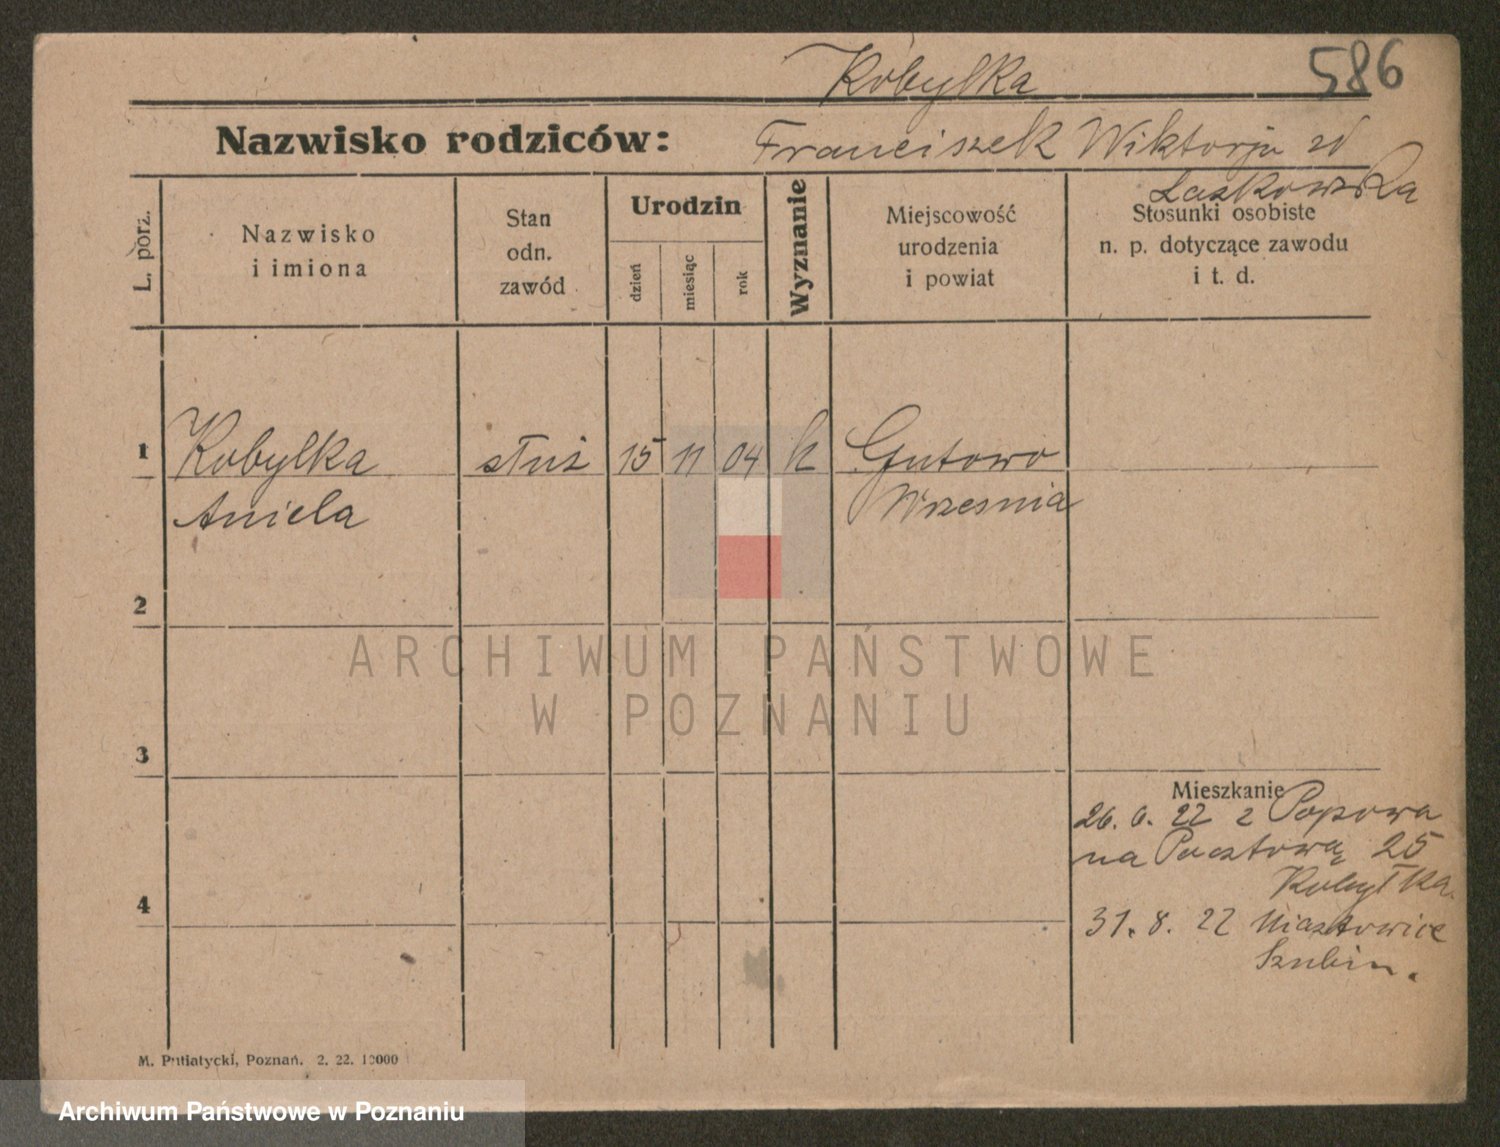 Kobylka 586
Nazwisko rodziców: Franciszek Wiktorja zd
Laskowska
L. porz.
Nazwisko
i imiona
Stan
odn.
zawód
Urodzin
dzień
miesiąc
rok
Wyznanie
Miejscowość
urodzenia
i powiat
Stosunki osobiste
n. p. dotyczące zawodu
i t. d.
1 Kobylka służ 15 11 04 k Gutowo
Aniela Wrzesnia
2
ARCHIWUM PAŃSTWOWE
W POZNANIU
3
Mieszkanie
26. 6. 22 z Popowa
na Pocztową 25
Kobyłka
4
31. 8. 22 Miastowice
Szubin.
M. Putiatycki, Poznań. 2. 22. 10000
Archiwum Państwowe w Poznaniu